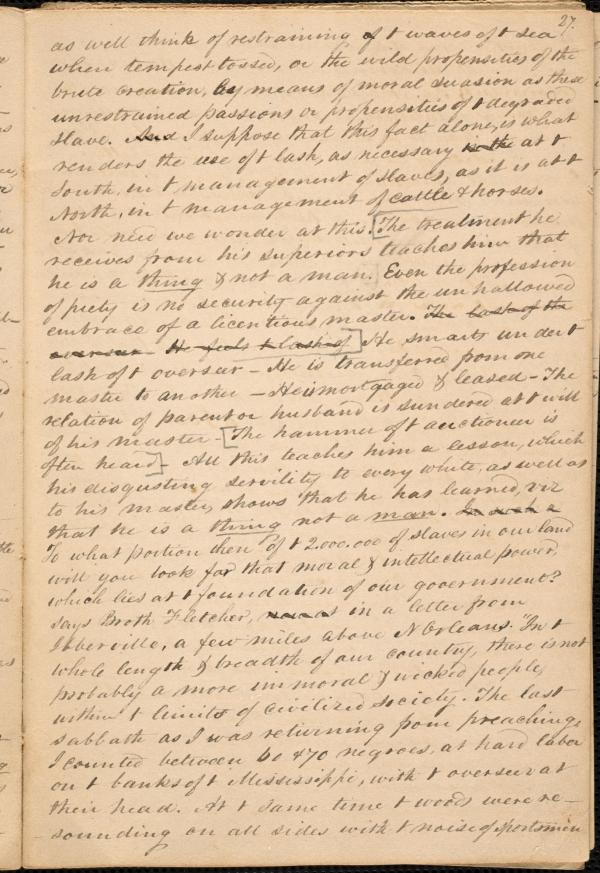 27.
as well think of restraining of t waves of t sea
when tempest tossed, or the wild propensities of the
brute creation, by means of moral suasion as these
unrestrained passions or propensities of t degraded
slave. And I suppose that this fact alone, is what
renders the use of t lash, as necessary to the at t
South, in t management of slaves, as it is at t
North, in t management of cattle & horses.
Nor need we wonder at this. [The treatment he
receives from his superiors teaches him that
he is a thing & not a man. Even the profession
of piety is no security against the unhallowed
embrace of a licentious master. The lash of the
oversear He feels t lash of] He smarts under t
lash of t oversear – He is transferred from one
master to another – He is mortgaged & leased – The
relation of parent or husband is sundered at t will
of his master – [The hammer of t auctioneer is
often heard] All this teaches him a lesson, which
his disgusting servility to every white, as well as
to his master, shows that he has learned, viz
that he is a thing not a man. In such a
To what portion then of t 2.000.000 of slaves in our land
will you look for that moral & intellectual power,
which lies at t foundation of our government?
Says Broth Fletcher, in a letter from
Ibberville, a few miles above N Orleans. "In t
whole length & breadth of our country, there is not
probably a more immoral & wicked people,
within t limits of civilized society. The last
sabbath as I was returning from preaching,
I counted between 60 & 70 negroes, at hard labor
on t banks of t Mississippi, with t overseer at
their head. At t same time t woods were re–
sounding on all sides with t noise of sportsmen